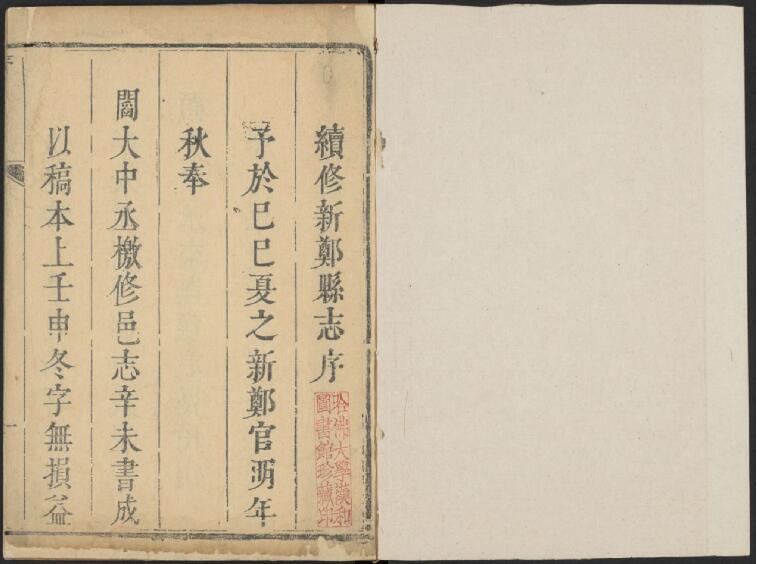 續修新鄭縣志序
予於己巳夏之新鄭官明年
秋奉
閻大中丞檄修邑志辛未書成
以稿本上壬申冬字無損益
哈佛大學漢和
圖書館珍藏印